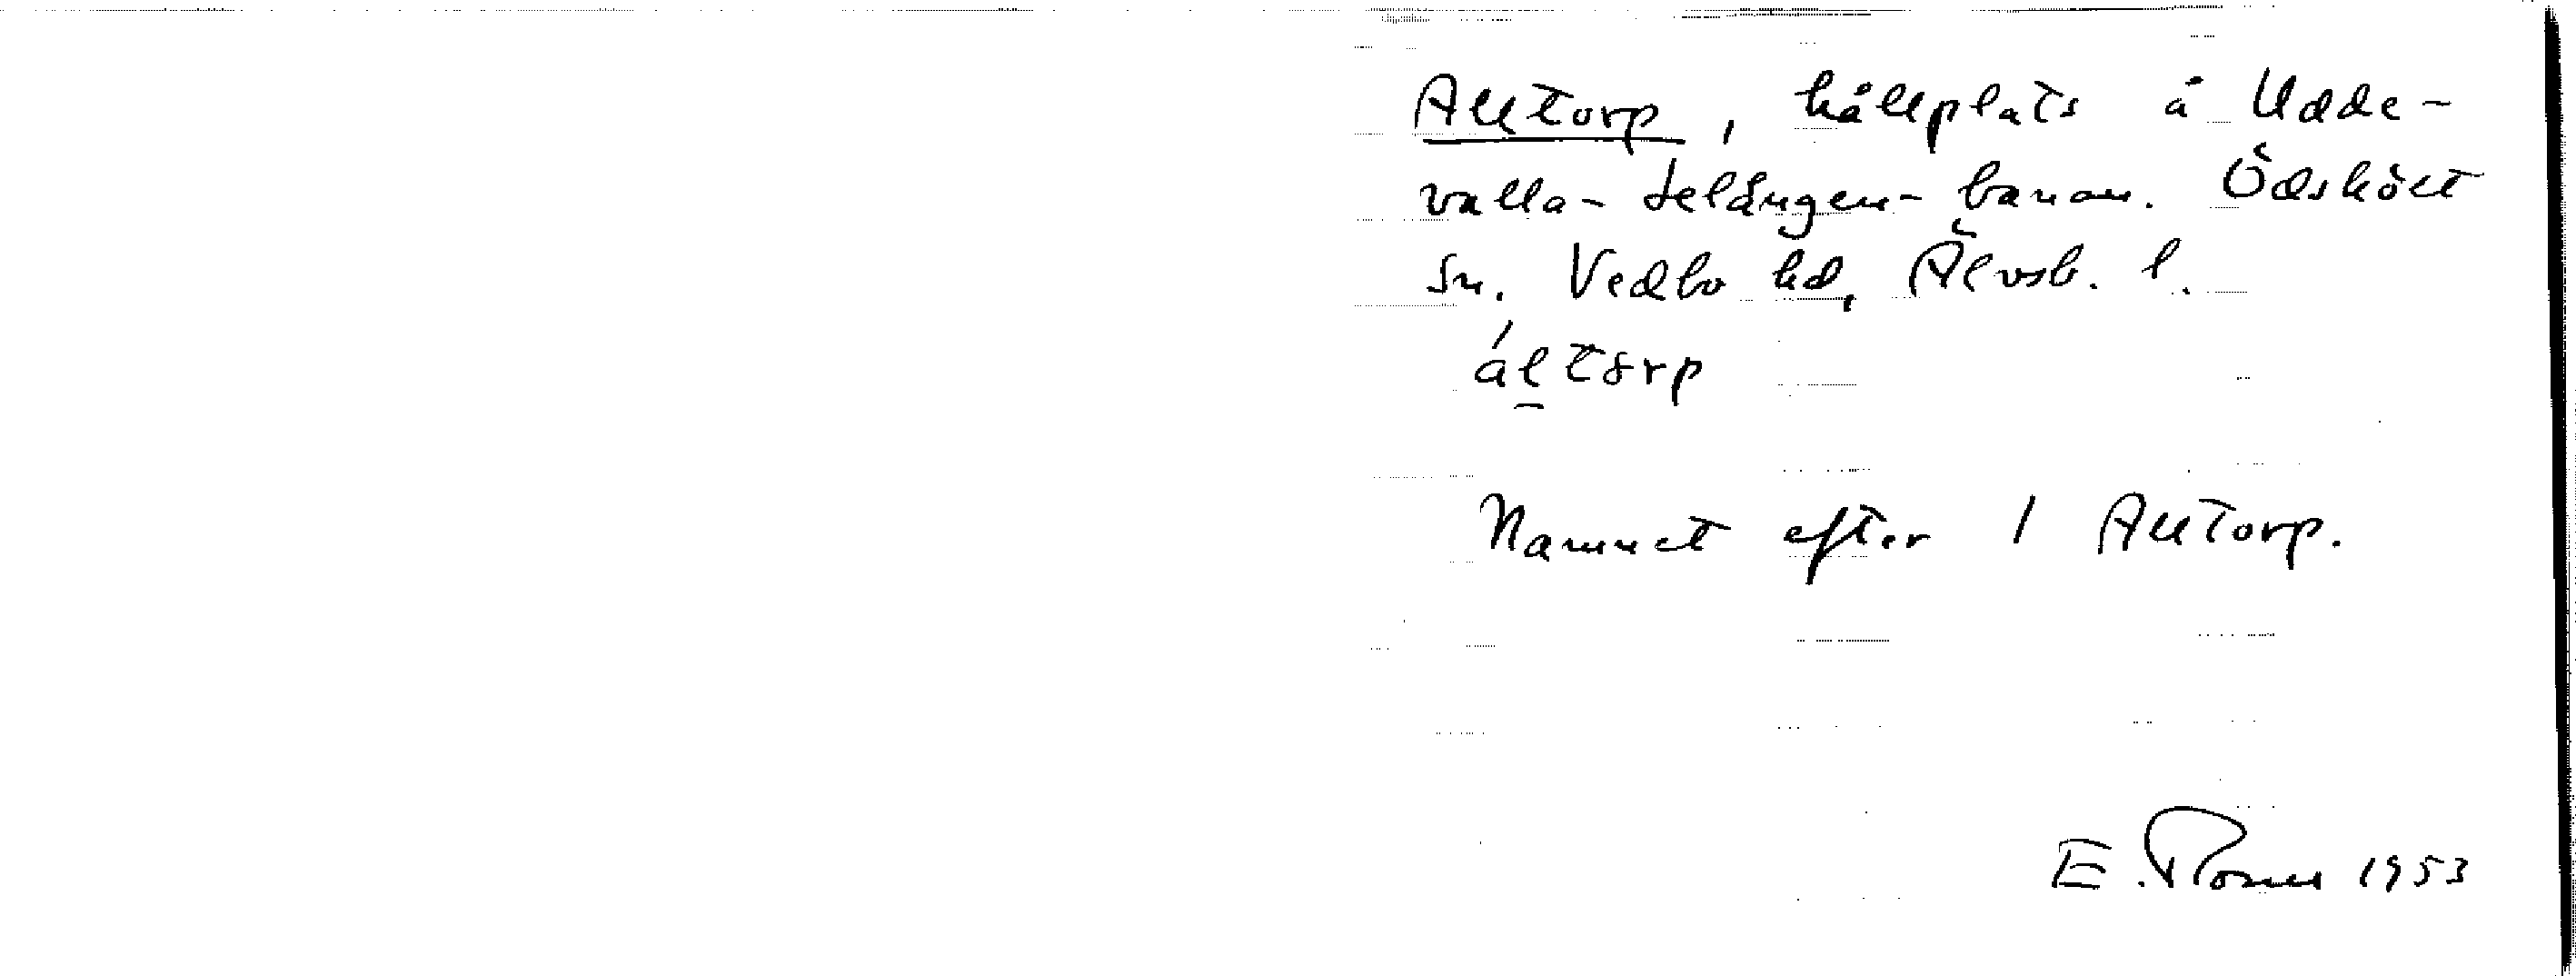 Alltorp, hållplats å Udde-
valla-Lelången-banan. Ödskölt
sn. Vedbo hd, Älvsb. l.
áltorp
Namnet efter 1 Alltorp.
E. 1953